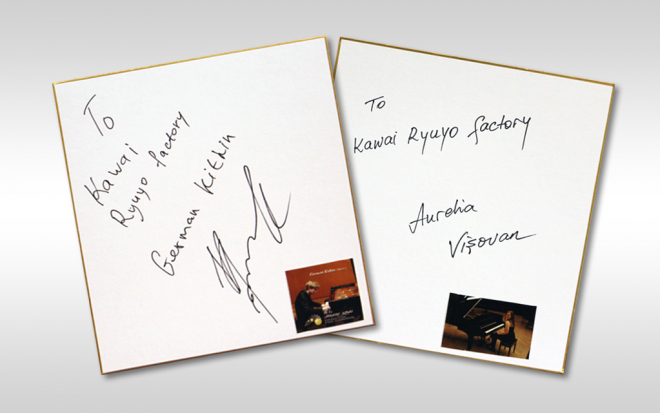 To
Kawai
Ryuyo factory
German Kitkin
To
Kawai Ryuyo factory
Aurelia
Vişovan